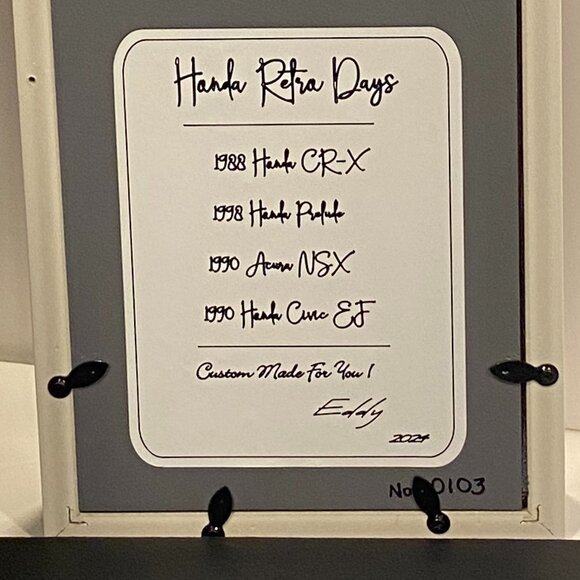 Honda Retro Days
1988 Honda CR-X
1998 Honda Prelude
1990 Acura NSX
1990 Honda Civic EF
Custom Made For You !
Eddy
2024
No 0103